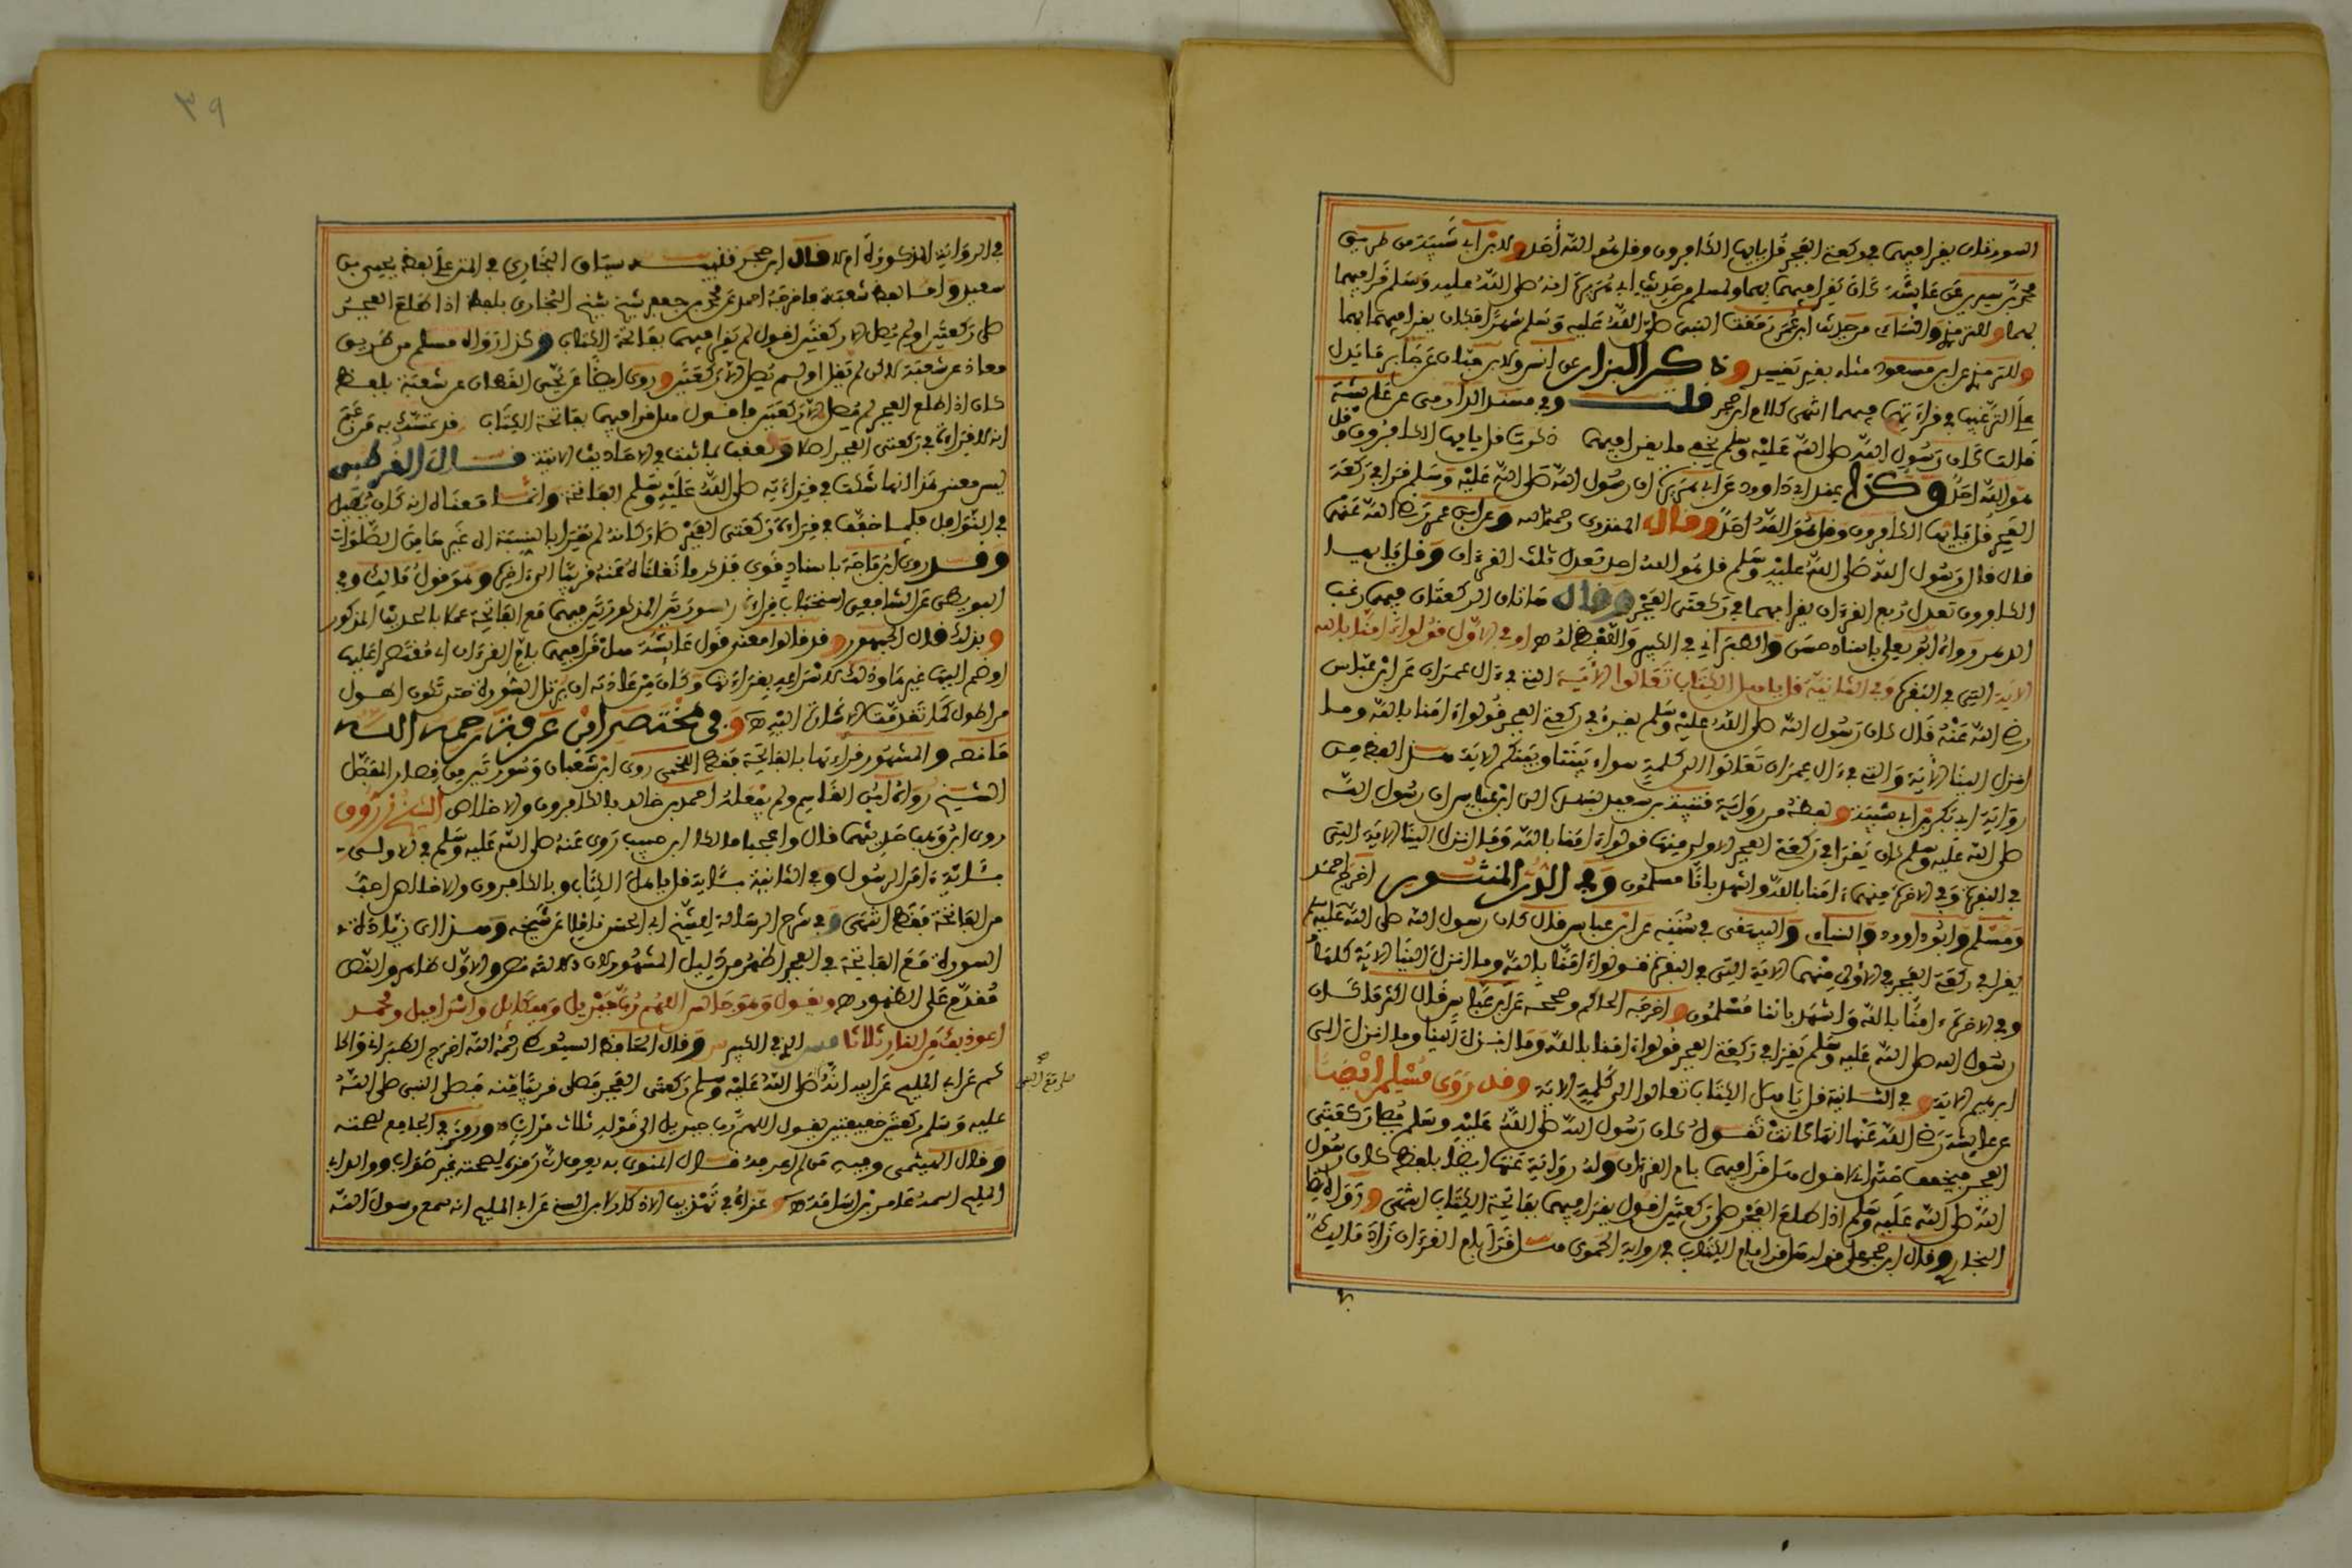 السورتان يقرأ بهما في ركعتي الفجر قل يا أيها الكافرون وقل هو الله أحد ولابن أبي شيبة من طريق
محمد بن سيرين عن عائشة كان يقرأ فيهما بهما ولمسلم من حديث أبي هريرة انه صلى الله عليه وسلم قرأ فيهما
بهما وللترمذي والنسائي من حديث ابن عمر رمقت النبي صلى الله عليه وسلم شهرا فكان يقرأ فيهما بهما
وللترمذي عن ابن مسعود مثله بغير تقييد وذكر البزار عن أنس ولابن حبان عن جابر ما يدل
على الترغيب في قراءتهما فيهما انتهى كلام ابن حجر قلت وفي مسند الدارمي عن عائشة
قالت كان رسول الله صلى الله عليه وسلم يخفي ما يقرأ فيهما ذكرت قل يا أيها الكافرون وقل
هو الله احد وكذا عند أبي داوود عن أبي هريرة ان رسول الله صلى الله عليه وسلم قرأ في ركعتي
الفجر قل يا أيها الكافرون وقل هو الله احد وقال المنذري رحمه الله وعن ابن عمر رضي الله عنهما
قال قال رسول الله صلى الله عليه وسلم قل هو الله احد تعدل ثلث القرءان وقل يا أيها
الكافرون تعدل ربع القرءان يقرأ بهما في ركعتي الفجر وقال هاتان الركعتان فيهما رغب
الدهر رواه أبو يعلى بإسناد حسن والطبراني في الكبير واللفظ له هـ او في الأول قولوا ءامنا بالله
الآية التي في البقرة وفي الثانية قل يا أهل الكتاب تعالوا الآية التي في ءال عمران عن ابن عباس
رضي الله عنه قال كان رسول الله صلى الله عليه وسلم يقرأ في ركعتي الفجر قولوا ءامنا بالله وما
انزل الينا الآية والتي في ءال عمران تعالوا الى كلمة سواء بيننا وبينكم الآية هذا لفظ من
رواية أبي بكر بن أبي شيبة ولفظه من رواية قتيبة بن سعيد بسنده الى ابن عباس ان رسول الله
صلى الله عليه وسلم كان يقرأ في ركعتي الفجر الاولى منهما قولوا ءامنا بالله وما انزل الينا الآية التي
في البقرة وفي الآخرة منهما ءامنا بالله واشهد بأنا مسلمون وفي الدر المنثور اخرج احمد
ومسلم وأبو داوود والنسائي والبيهقي في سننه عن ابن عباس قال كان رسول الله صلى الله عليه وسلم
يقرأ في ركعتي الفجر في الأولى منهما الآية التي في البقرة قولوا ءامنا بالله وما انزل الينا الآية كلها
وفي الآخرة ءامنا بالله واشهد بأننا مسلمون واخرج الحاكم وصححه عن ابن عباس قال اكثر ما كان
رسول الله صلى الله عليه وسلم يقرأ في ركعتي الفجر قولوا ءامنا بالله وما انزل الينا وما انزل الى
ابراهيم الآية وفي الثانية قل يا أهل الكتاب تعالوا الى كلمة الآية وقد روى مسلم ايضا
عن عائشة رضي الله عنها انها كانت تقول كان رسول الله صلى الله عليه وسلم يصلي ركعتي
الفجر فيخفف حتى اني لاقول هل قرأ فيهما بأم القرءان وله رواية عنها ايضا بلفظ كان رسول
الله صلى الله عليه وسلم اذا طلع الفجر صلى ركعتين اقول يقرأ فيهما بفاتحة الكتاب انتهى ورواه ايضا
البخاري وقال ابن حجر على قوله هل قرأ بأم الكتاب في رواية الحموي هل قرأ بأم القرءان زاد مالك
٣٩
في الرواية المذكورة ام لا قال ابن حجر تنبيه ساق البخاري في المتن على لفظ يحيى بن
سعيد واما لفظ شعبة فاخرجه احمد عن محمد بن جعفر شيخ شيخ البخاري بلفظ اذا طلع الفجر
صلى ركعتين او لم يصل الا ركعتين اقول لم يقرأ فيهما بفاتحة الكتاب وكذا رواه مسلم من طريق
معاذ عن شعبة لكن لم يقل او لم يصل الا ركعتين وروى ايضا عن يحيى القطان عن شعبة بلفظ
كان اذا طلع الفجر لم يصل الا ركعتين فاقول هل قرأ فيهما بفاتحة الكتاب وقد تمسك به من زعم
انه لا قراءة في ركعتي الفجر اصلا وتعقب بما ثبت في الاحاديث الآتية قال القرطبي
ليس معنى هذا انها شكت في قراءته صلى الله عليه وسلم الفاتحة وانما معناه انه كان يطيل
في النوافل فلما خفف في قراءة ركعتي الفجر صار كانه لم يقرأ بالنسبة الى غيرها من الصلوات
وقد روى ابن ماجة باسناد قوي فذكر ما نقلناه عنه قريبا الى اخره وهو قول مالك وفي
البويطي عن الشافعي استحباب قراءة السورتين المذكورتين فيهما مع الفاتحة عملا بالحديث المذكور
وبذلك قال الجمهور وقد قالوا معنى قول عائشة هل قرأ فيهما بأم القرءان اي مقتصرا عليها
او ضم اليها غيرها وذلك لاسراعه بقراءتها وكان من عادته ان يرتل السورة حتى تكون اطول
من اطول كما تقدمت الاشارة اليه هـ وفي مختصر ابن عرفة رحمه الله
ما نصه والمشهور قراءتها بالفاتحة فقط اللخمي روى ابن شعبان وسورتين من قصار المفصل
الشيخ رواه ابن القاسم ولم يفعله احمد بن خالد بالكافرون والاخلاص الشيخ زروق
روى ابن وهب حديثهما قال واعجب مالكا ابن حبيب روى عنه صلى الله عليه وسلم في الاولى
بآية ءامن الرسول وفي الثانية بآية قل يا أهل الكتاب وبالكافرون والاخلاص احب
من الفاتحة فقط انتهى وفي شرح الرسالة للشيخ أبي الحسن ناقلا عن شيخه وهذا الى زيادة
السورة مع الفاتحة في الفجر اظهر من دليل المشهور لان دلالته نص والاول ظاهر والنص
مقدم على الظهور هـ ويقول وهو جالس اللهم رب جبريل وميكائيل واسرافيل ومحمد
اعوذ بك من النار ثلاثا في الكبير وقال الحافظ السيوطي رحمه الله اخرج الطبراني والحا
كم عن أبي المليح عن ابيه انه صلى الله عليه وسلم ركعتي الفجر فصلى قريبا منه فصلى النبي صلى الله
صلى مع النبي صح
عليه وسلم ركعتين خفيفتين يقول اللهم رب جبريل الى قوله ثلاث مرات هـ ورمز في الجامع لصحته
وقال الهيثمي وفيه من لم اعرفه قال المناوي به يعرف ان رمزه لصحته غير صواب ووالد أبي
المليح اسمه عامر بن اسامة هـ وعزاه في تهذيب الاذكار لابن السني عن أبي المليح انه سمع رسول الله